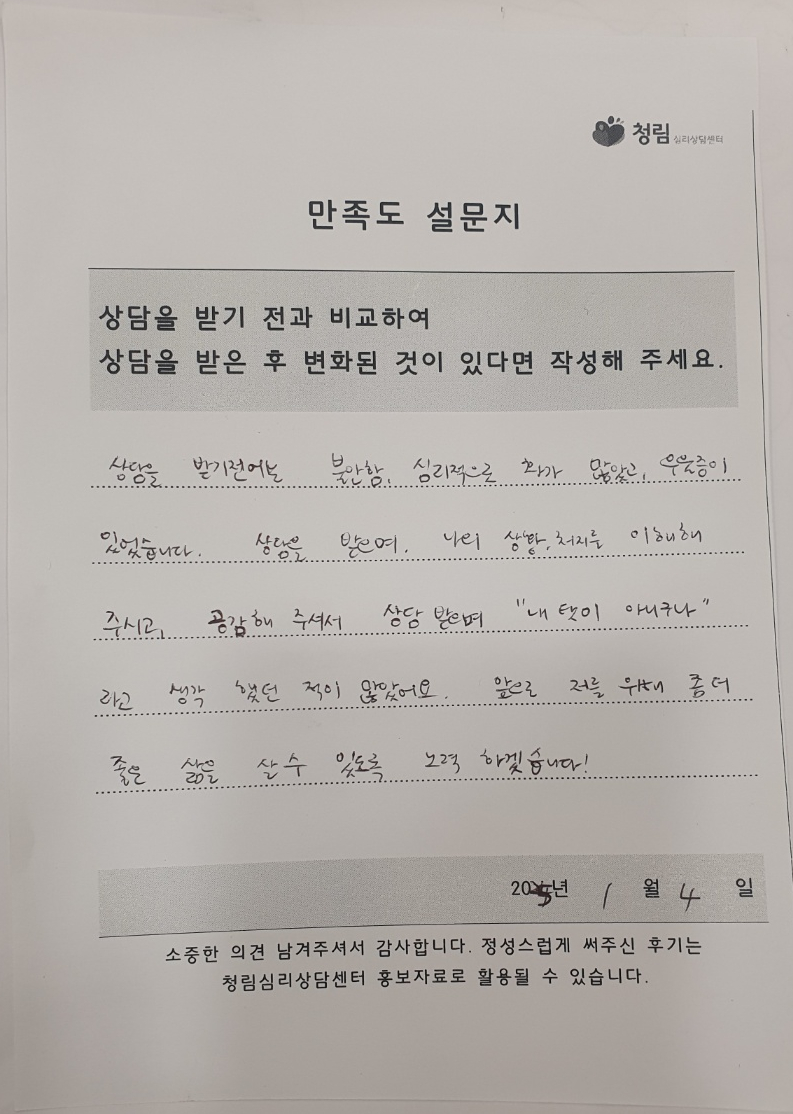 청림 심리상담센터
만족도 설문지
상담을 받기 전과 비교하여
상담을 받은 후 변화된 것이 있다면 작성해 주세요.
상담을 받기전에는 불안함, 심리적으로 화가 많았고, 우울증이
있었습니다. 상담을 받으며, 나의 상황, 처지를 이해해
주시고, 공감해 주셔서 상담 받으며 "내 탓이 아니구나"
라고 생각 했던 적이 많았어요. 앞으로 저를 위해 좀 더
좋은 삶을 살 수 있도록 노력 하겠습니다!
2025년 1 월 4 일
소중한 의견 남겨주셔서 감사합니다. 정성스럽게 써주신 후기는
청림심리상담센터 홍보자료로 활용될 수 있습니다.